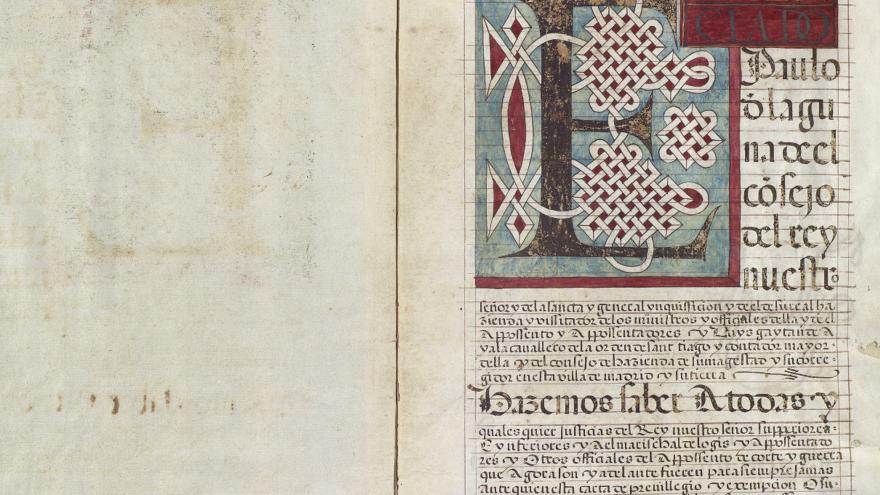 E
CIADO
Paulo
ð lagu
na de el
cõsejo
del rey
nuestro
señor y de la sancta y general ynquissicion y de el de su real ha
zienda y vissitador de los ministros y officiales della y de el
Appossento y Appossentadores y Luys gaytan de A
yala cavallero de la orden de sant tiago y contador mayor
della y del consejo de hazienda de su magestad y su corre
gidor en esta villa de madrid y su tierra
Hazemos saber A todas y
quales quier justicias del Rey nuestro señor supperiores
E ynferiores y Ael marischal de logis y Appossentado
res y Otros officiales del Appossento de corte y guerra
que Agora son y adelante fueren para siempre jamas
ante quien esta carta de previllegio y exempcion O su